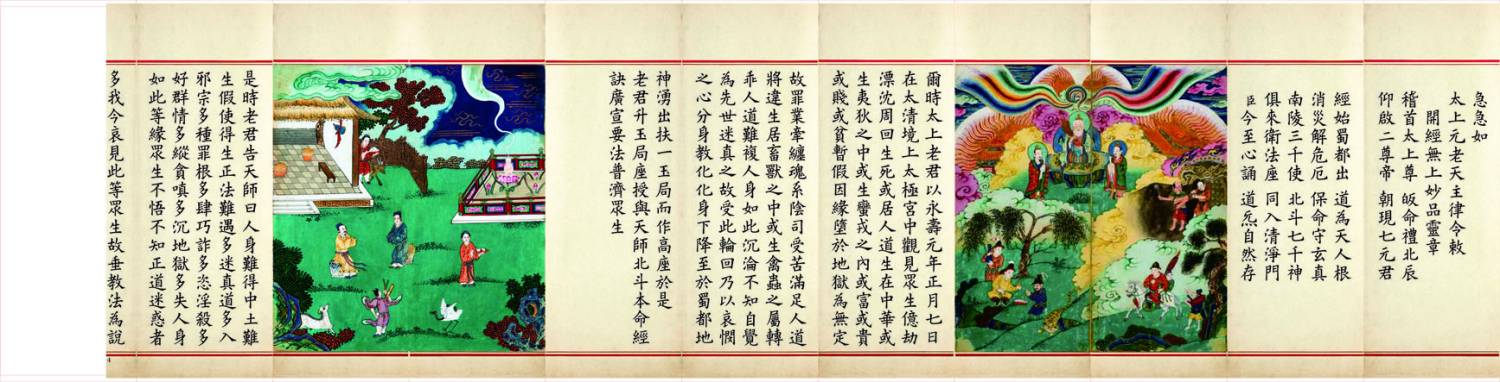 急急如
太上元老天主律令敕
開經無上妙品靈章
稽首太上尊 皈命禮北辰
仰啟二尊帝 朝現七元君
經始蜀都出 道為天人根
消災解危厄 保命守玄真
南陵三千使 北斗七千神
俱來衛法座 同入清淨門
臣今至心誦 道炁自然存
爾時太上老君以永壽元年正月七日
在太清境上太極宮中觀見眾生億劫
漂沈周回生死或居人道生在中華或
生夷狄之中或生蠻戎之內或富或貴
或賤或貧暫假因緣墮於地獄為無定
故罪業牽纏魂系陰司受苦滿足人道
將違生居畜獸之中或生禽蟲之屬轉
乖人道難複人身如此沉淪不知自覺
為先世迷真之故受此輪回乃以哀憫
之心分身教化化身下降至於蜀都地
神湧出扶一玉局而作高座於是
老君升玉局座授與天師北斗本命經
訣廣宣要法普濟眾生
是時老君告天師曰人身難得中土難
生假使得生正法難遇多迷真道多入
邪宗多種罪根多肆巧詐多恣淫殺多
好群情多縱貪嗔多沉地獄多失人身
如此等緣眾生不悟不知正道迷惑者
多我今哀見此等眾生故垂教法為說